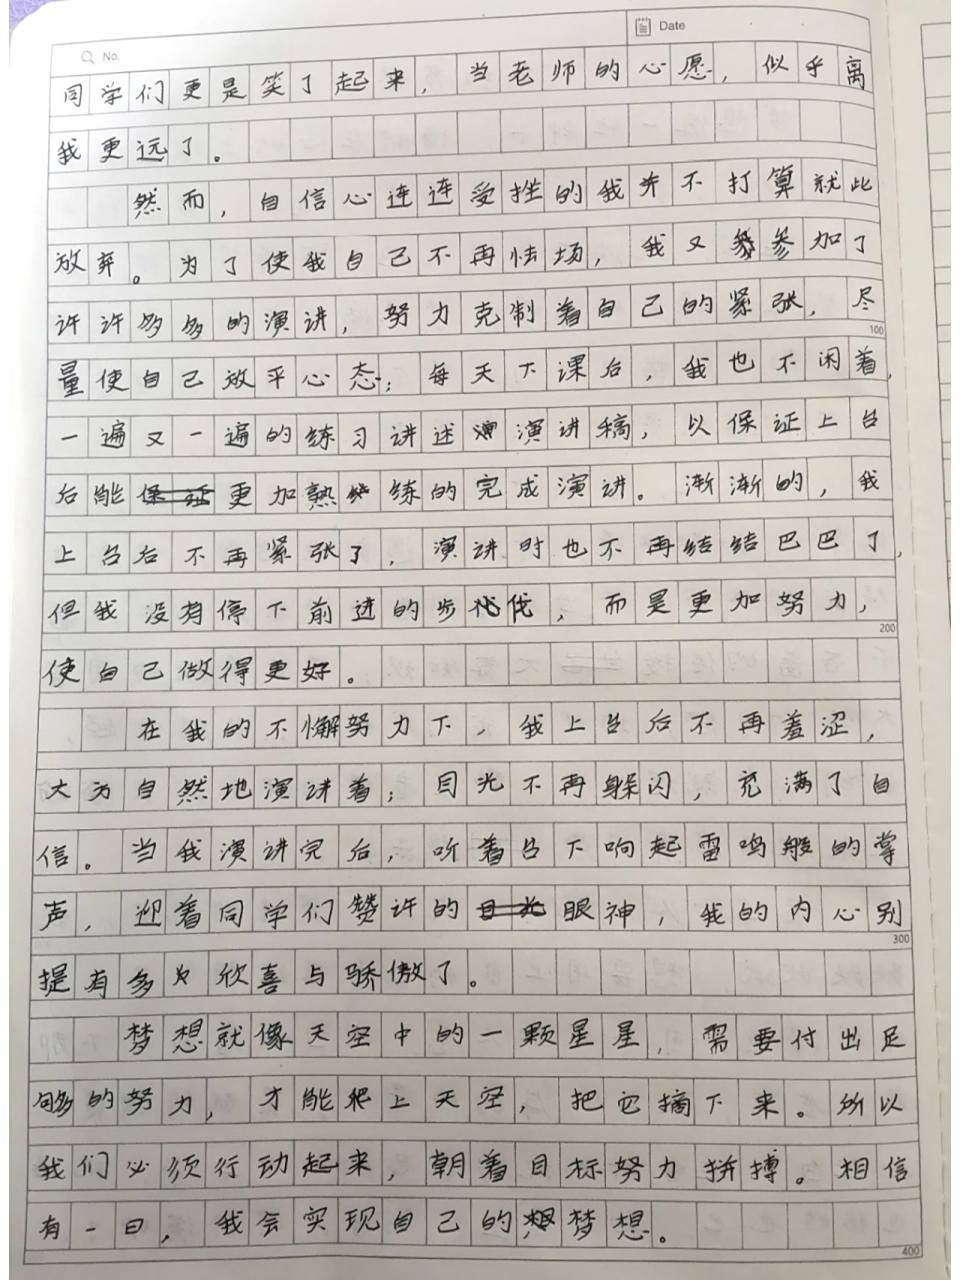 No.
Date
同学们更是笑了起来，当老师的心愿，似乎离
我更远了。
然而，自信心连连受挫的我并不打算就此
放弃。为了使我自己不再怯场，我又参加了
许许多多的演讲，努力克制着自己的紧张，尽
100
量使自己放平心态；每天下课后，我也不闲着，
一遍又一遍的练习讲述演讲稿，以保证上台
后能更加熟练的完成演讲。渐渐的，我
上台后不再紧张了，演讲时也不再结结巴巴了，
但我没有停下前进的步伐，而是更加努力，
200
使自己做得更好。
在我的不懈努力下，我上台后不再羞涩，
大方自然地演讲着；目光不再躲闪，充满了自
信。当我演讲完后，听着台下响起雷鸣般的掌
声，迎着同学们赞许的眼神，我的内心别
300
提有多么欣喜与骄傲了。
梦想就像天空中的一颗星星，需要付出足
够的努力，才能爬上天空，把它摘下来。所以
我们必须行动起来，朝着目标努力拼搏。相信
有一日，我会实现自己的梦想。
400